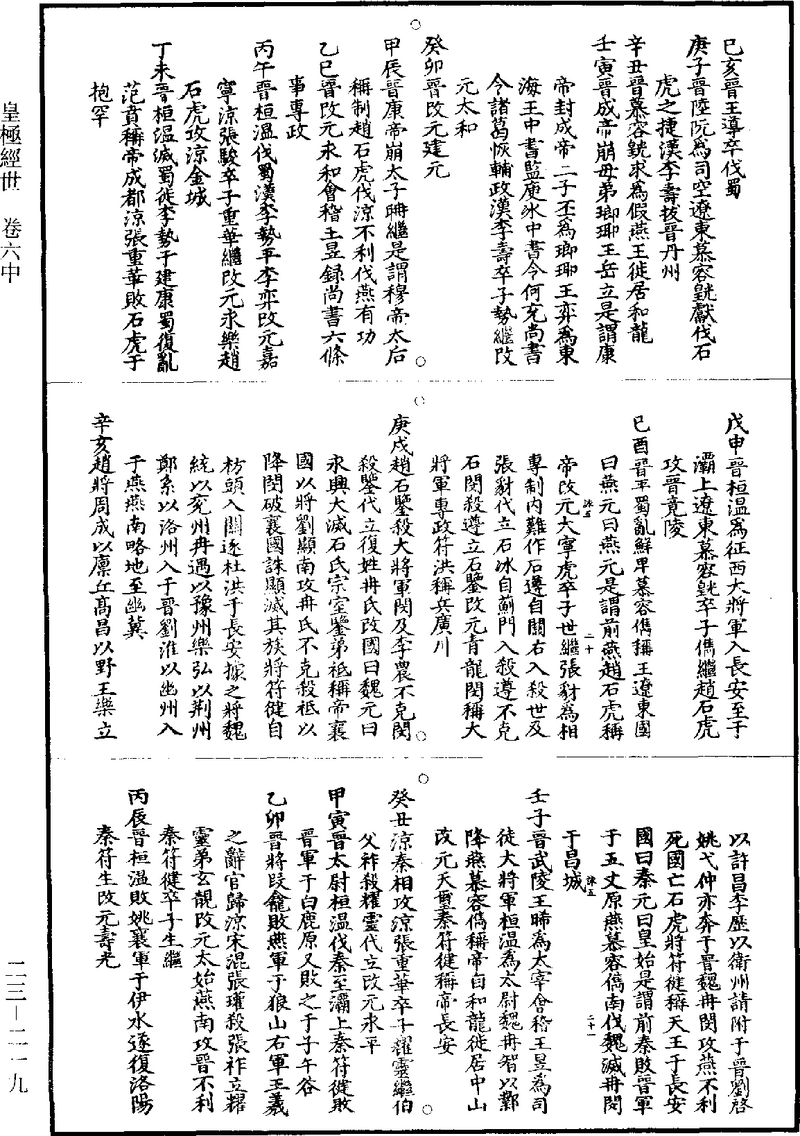 皇極經世　卷六中
二三—二一九
己亥晉王導卒伐蜀
庚子晉陸阮爲司空遼東慕容皝獻伐石
虎之捷漢李壽拔晉丹州
辛丑晉慕容皝求爲假燕王徙居和龍
壬寅晉成帝崩母弟瑯琊王岳立是謂康
帝封成帝二子丕爲瑯琊王弈爲東
海王中書監庾冰中書令何充尚書
令諸葛恢輔政漢李壽卒子勢繼改
元太和
癸卯晉改元建元
甲辰晉康帝崩太子聃繼是謂穆帝太后
稱制趙石虎伐涼不利伐燕有功
乙巳晉改元永和會稽王昱録尚書六條
事專政
丙午晉桓溫伐蜀漢李勢平李弈改元嘉
寧涼張駿卒子重華繼改元永樂趙
石虎攻涼金城
丁未晉桓溫滅蜀徙李勢于建康蜀復亂
范賁稱帝成都涼張重華敗石虎于
抱罕
戊申晉桓溫爲征西大將軍入長安至于
灞上遼東慕容皝卒子儁繼趙石虎
攻晉竟陵
己酉晉平蜀亂鮮卑慕容儁稱王遼東國
曰燕元曰燕元是謂前燕趙石虎稱
帝改元大寧虎卒子世繼張豺爲相
專制内難作石遵自關右入殺世及
張豺代立石冰自薊門入殺遵不克
石閔殺遵立石鑒改元青龍閔稱大
將軍專政符洪稱兵廣川
庚戌趙石鑒殺大將軍閔及李農不克閔
殺鑒代立復姓冉氏改國曰魏元曰
永興大滅石氏宗室鑒弟祗稱帝襄
國以將劉顯南攻冉氏不克殺祗以
降閔破襄國誅顯滅其族將符健自
枋頭入關逐杜洪于長安據之將魏
統以兗州冉遇以豫州樂弘以荆州
鄭系以洛州入于晉劉淮以幽州入
于燕燕南略地至幽冀
辛亥趙將周成以廩丘高昌以野王樂立
以許昌李歷以衛州請附于晉劉啓
姚弋仲亦奔于晉魏冉閔攻燕不利
死國亡石虎將符健稱天王于長安
國曰秦元曰皇始是謂前秦敗晉軍
于五丈原燕慕容儁南伐魏滅冉閔
于昌城
壬子晉武陵王晞爲太宰會稽王昱爲司
徒大將軍桓溫爲太尉魏冉智以鄴
降燕慕容儁稱帝自和龍徙居中山
改元天璽秦符健稱帝長安
癸丑涼秦相攻涼張重華卒子耀靈繼伯
父祚殺耀靈代立改元永平
甲寅晉太尉桓溫伐秦至灞上秦符健敗
晉軍于白鹿原又敗之于子午谷
乙卯晉將段龕敗燕軍于狼山右軍王羲
之辭官歸涼宋混張瓘殺張祚立耀
靈弟玄靚改元太始燕南攻晉不利
秦符健卒子生繼
丙辰晉桓溫敗姚襄軍于伊水遂復洛陽
秦符生改元壽光